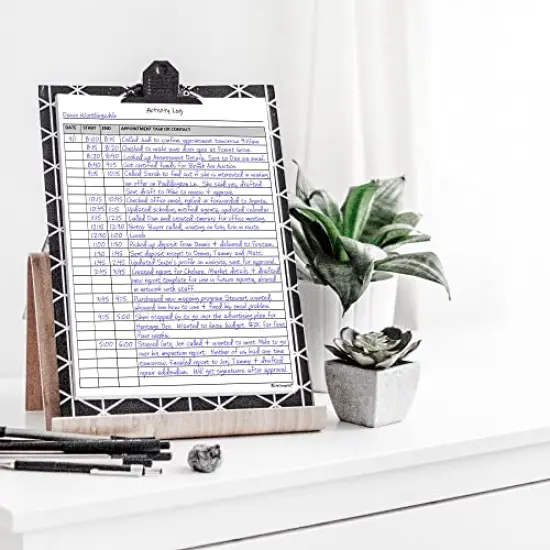 Activity Log
DATE START END APPOINTMENT TASK OR CONTACT
4/1 8:00 8:15 Called Judi to confirm appointment tomorrow
8:15 8:20 Checked to make sure door open at Forest Grove.
8:20 8:40 Looked up Agreement Details. Sent to Dan via email.
8:40 9:15 Got certified funds for Auction
9:15 10:15 Called Sarah to find out if she is interested in making
an offer on Paddington Ln. She said yes, drafted.
Sent draft to Mike to review + approve.
10:15 10:45 Checked office email, replied or forwarded to
10:45 1:15 Updated schedule, notified agents, updated calendar
1:15 12:15 Called Dan and created itinerary for office meeting
12:15 12:30 Notary Buyer called, waiting on him, Erin in route
12:30 1:00 Lunch
1:00 1:30 Picked up deposit from Dennis + delivered to
1:30 1:45 Sent deposit receipt to Dennis, Tammy and Matt.
1:45 2:45 Updated Suzie's profile on website, sent for approval.
2:45 3:45 Created report for Chelsea. Market details + drafted
new report template for use in future reports, shared
in artwork with staff.
3:45 4:15 Purchased new mapping program Stewart wanted,
showed him how to use + fixed his email problem.
4:15 5:00 Shari stopped by to go over the advertising plan for
Heritage Bay. Wanted to know budget. $12K for first
four weeks.
5:00 6:00 Stayed Late, Jer called + wanted to meet Mike to go
over his inspection report. Neither of us had any time
tomorrow. Emailed report to Jer, Tammy + drafted
repair addendum. Will get signatures after approval.